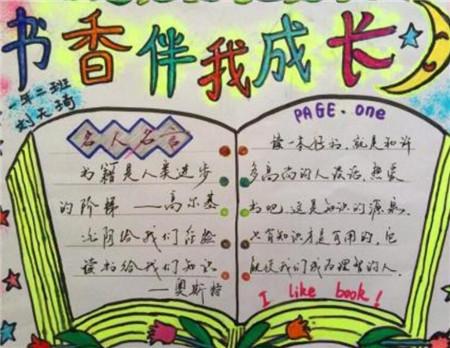 书香伴我成长
一年二班
刘天琦
名人名言
书籍是人类进步
的阶梯——高尔基
光阴给我们经验
读书给我们知识
——奥斯特
PAGE.one
读一本好书,就是和许
多高尚的人谈话,热爱
书吧,这是知识的源泉,
只有知识才是有用的,它
能使我们成为理智的人.
I like book!